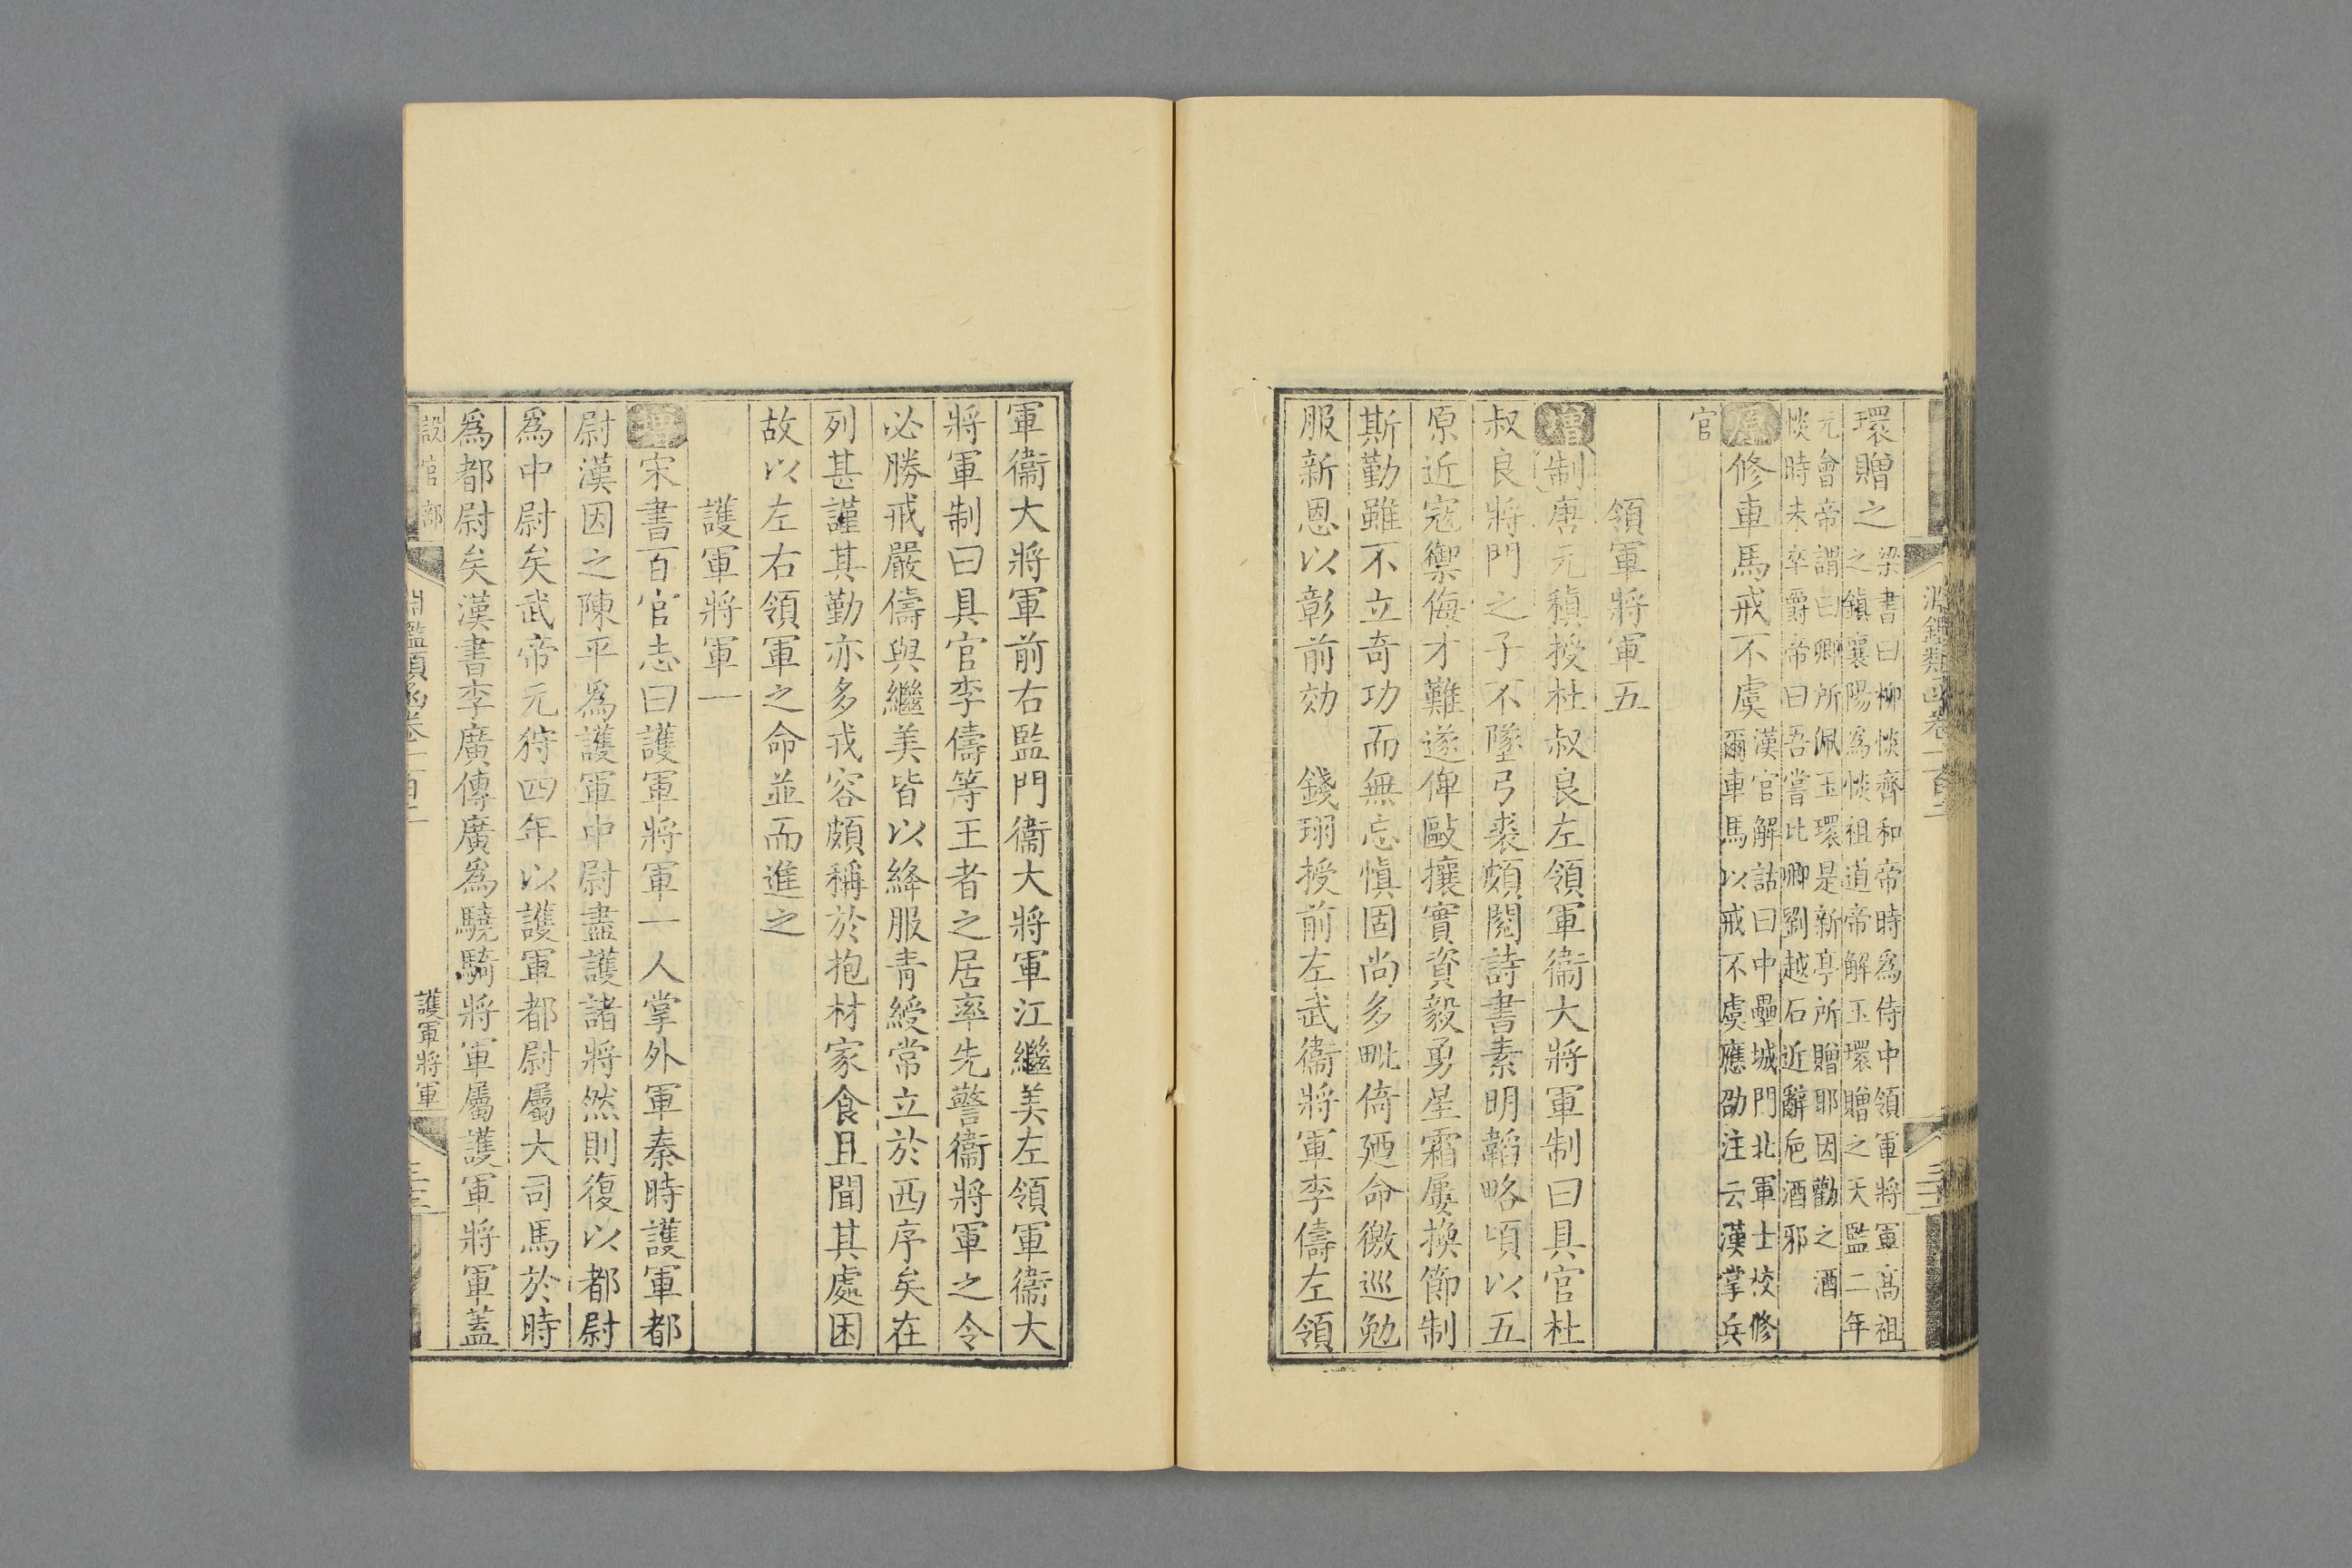 淵鑑類函卷一百
環贈之梁書曰柳惔齊和帝時爲侍中領軍將軍髙祖
之鎮襄陽爲惔祖道帝解玉環贈之天監二年
元會帝謂曰卿所佩玉環是新亭所贈耶因勸之酒
惔時未卒爵帝曰吾嘗比卿劉越石近辭巵酒邪
原修車馬戒不虞漢官解詁曰中壘城門北軍士校修
爾車馬以戒不虞應劭注云漢掌兵
官
領軍將軍五
增制唐元稹授杜叔良左領軍衞大將軍制曰具官杜
叔良將門之子不墜弓裘頗閱詩書素明韜略頃以五
原近寇禦侮才難遂俾毆攘實資毅勇星霜屢換節制
斯勤雖不立奇功而無忘愼固尚多毗倚廼命徼巡勉
服新恩以彰前効　錢珝授前左武衞將軍李儔左領
軍衞大將軍前右監門衞大將軍江繼美左領軍衞大
將軍制曰具官李儔等王者之居率先警衞將軍之令
必勝戒嚴儔與繼美皆以絳服青綬常立於西序矣在
列甚謹其勤亦多戎容頗稱於抱材家食且聞其處困
故以左右領軍之命並而進之
護軍將軍一
增宋書百官志曰護軍將軍一人掌外軍秦時護軍都
尉漢因之陳平爲護軍中尉盡護諸將然則復以都尉
爲中尉矣武帝元狩四年以護軍都尉屬大司馬於時
爲都尉矣漢書李廣傳廣爲驍騎將軍屬護軍將軍蓋
設官部
淵鑑類函卷一百
護軍將軍